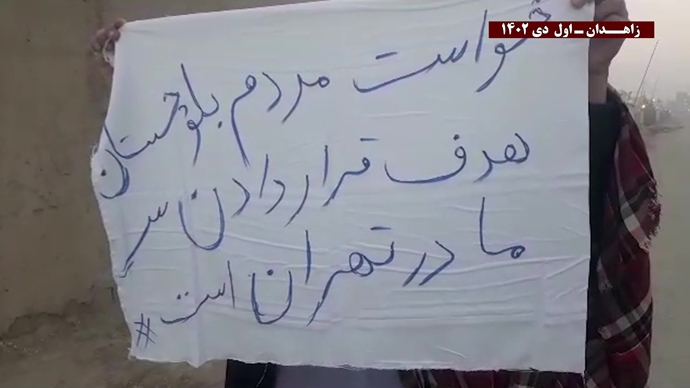 زاهـدان ـ اول دی ۱۴۰۲
خواست مردم بلوچستان
هدف قرار دادن سر
ما در تهران است#